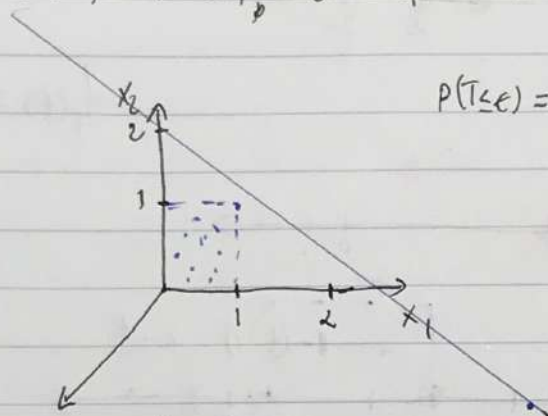 P(T≤ϵ) =
X₂
2
1
1 2
X₁